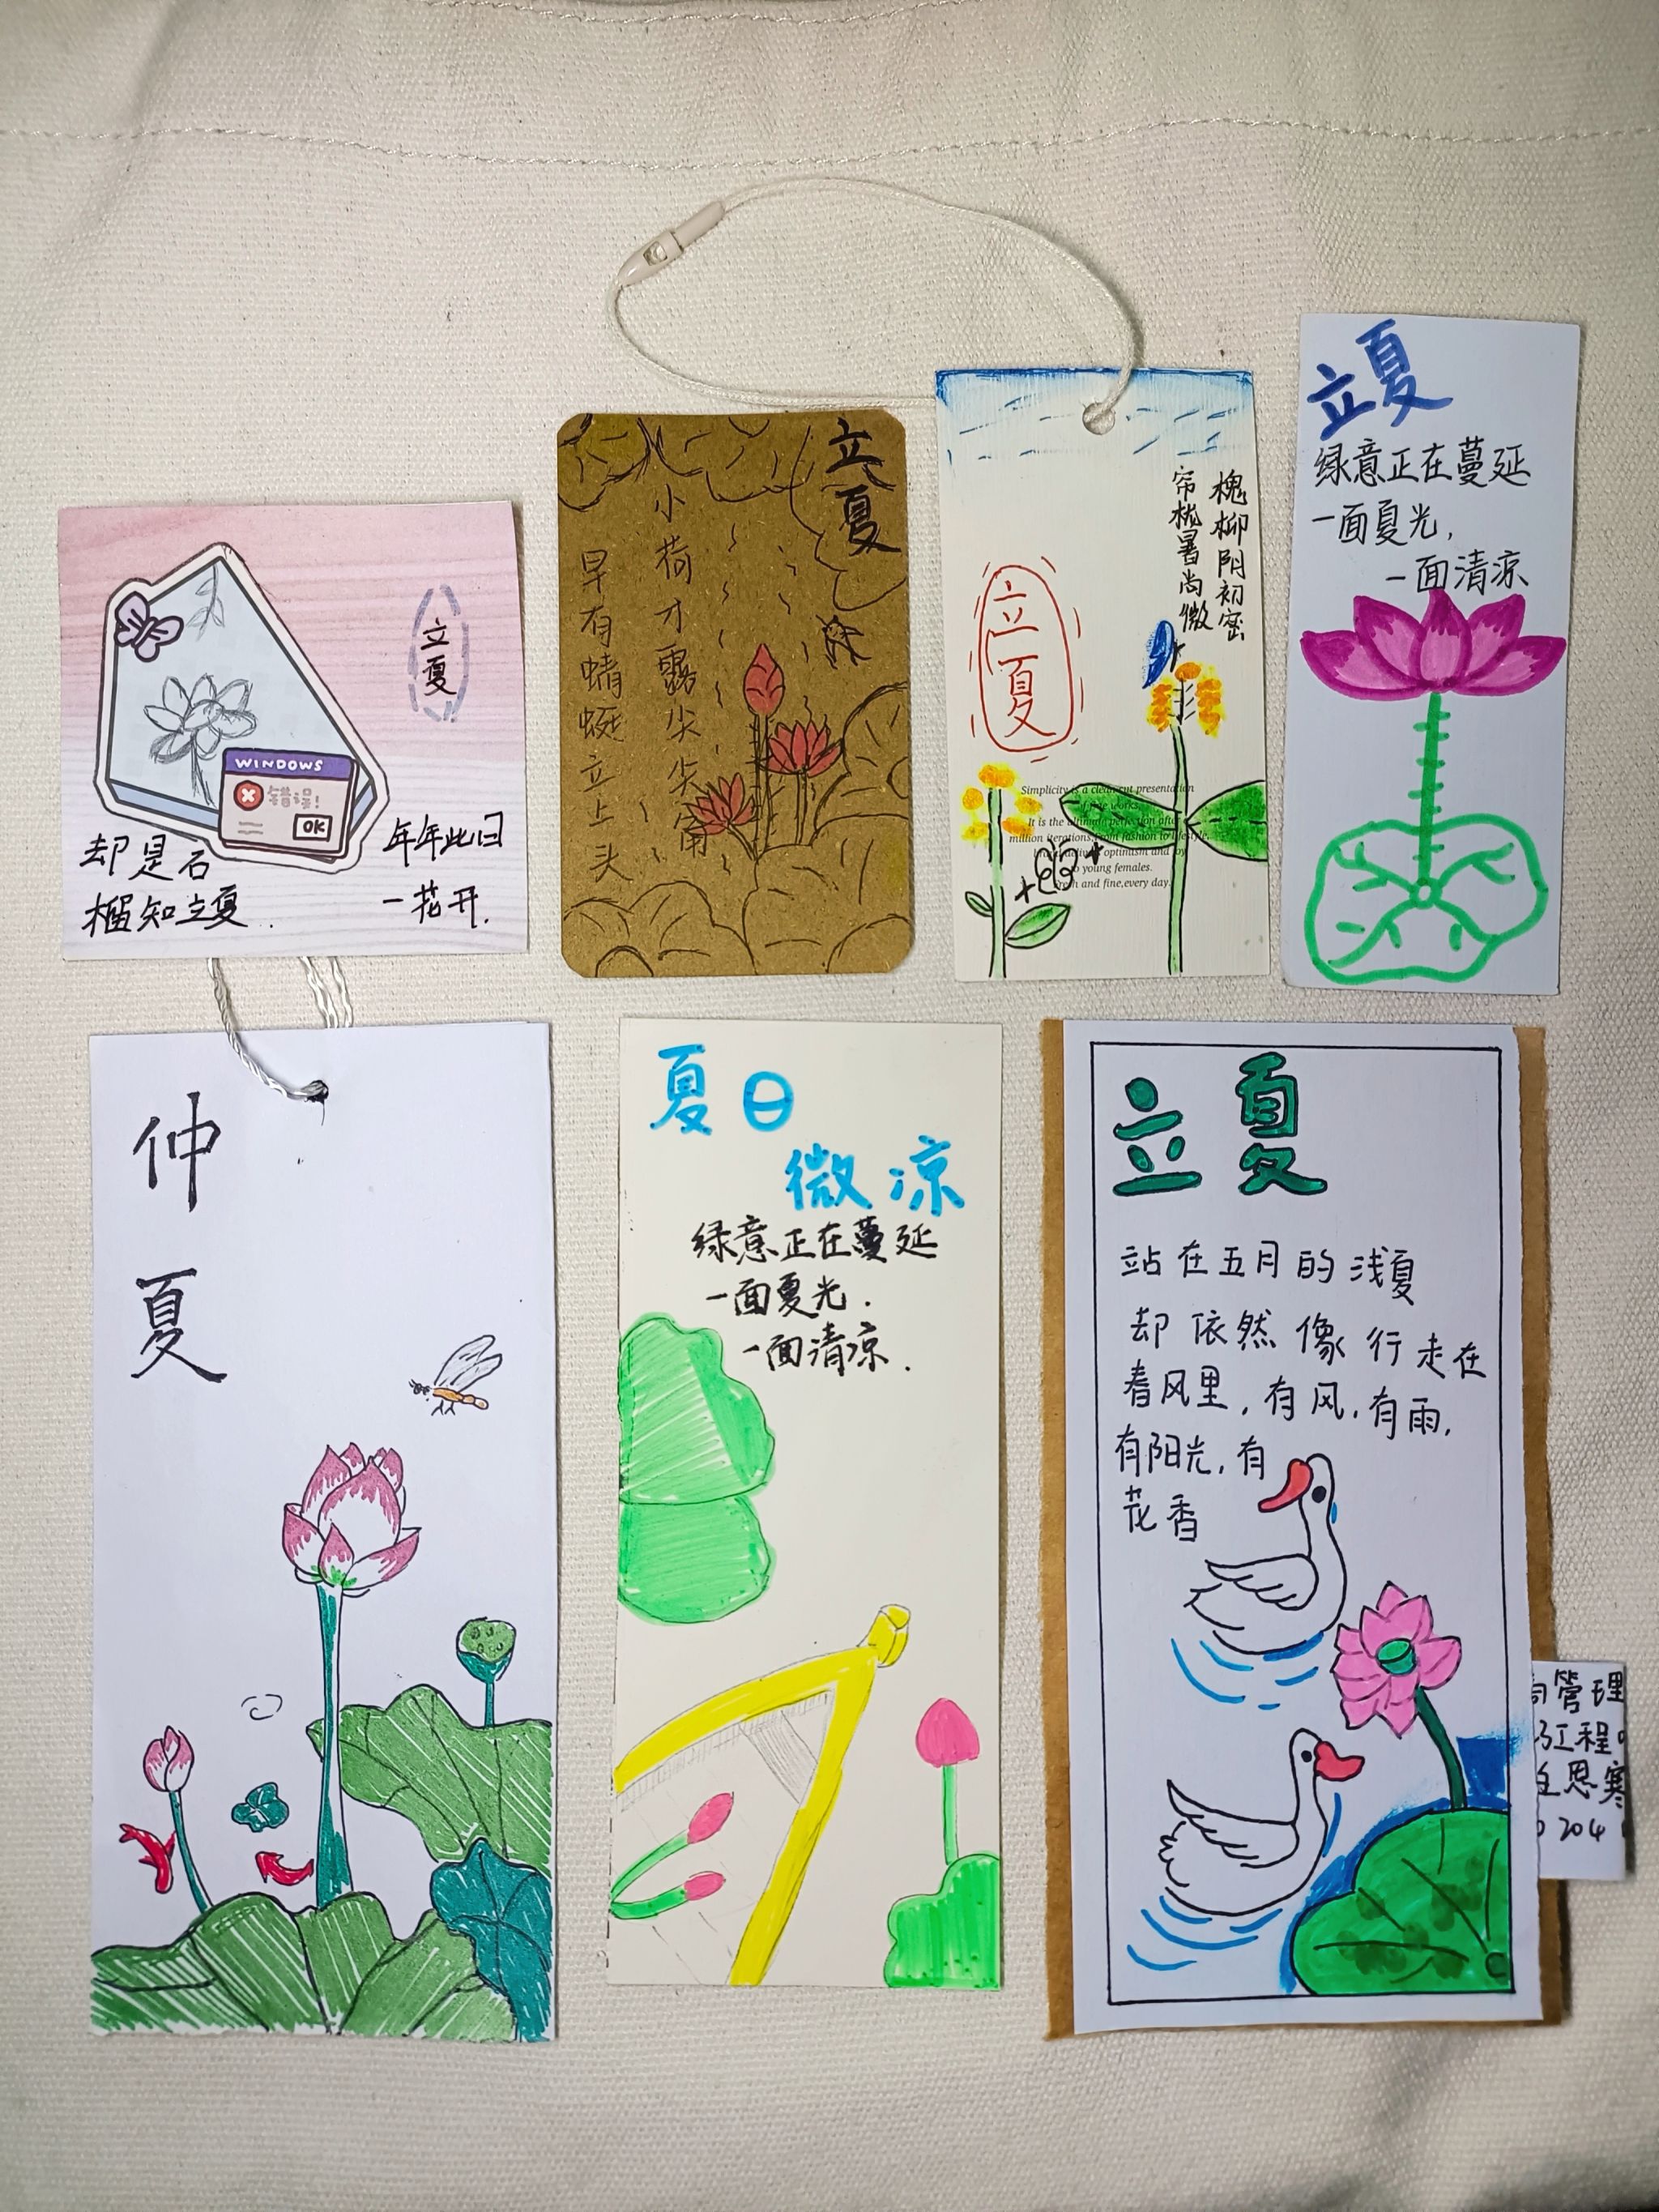 立夏
WINDOWS
错误!
OK
却是石
榴知立夏.
年年此日
一花开.
立夏
小荷才露尖尖角
早有蜻蜓立上头
槐柳阴初密
帘栊暑尚微
立夏
Simplicity is a clean cut presentation
of fine works.
It is the ultimate perfection after
million iterations. From fashion to lifestyle,
optimism and joy
to young females.
Fresh and fine,every day.
立夏
绿意正在蔓延
一面夏光,
一面清凉
仲夏
夏日
微凉
绿意正在蔓延
一面夏光.
一面清凉.
立夏
站在五月的浅夏
却依然像行走在
春风里,有风,有雨,
有阳光,有
花香
管理
工程
思寒
204